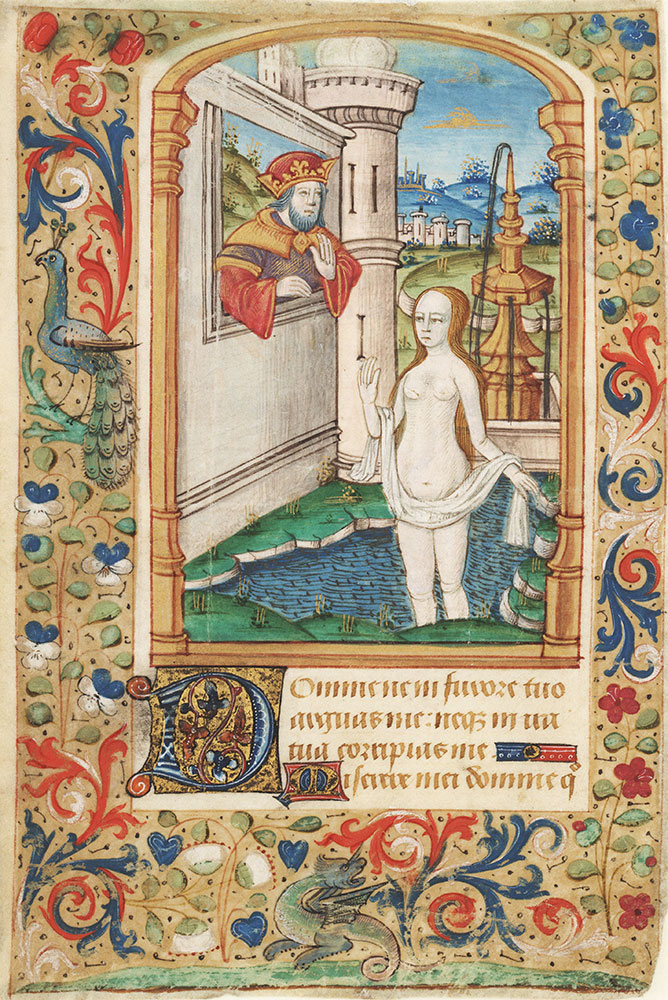 Domine ne in furore tuo
arguas me: neqz in ira
tua corripias me
Miserere mei domine q̃